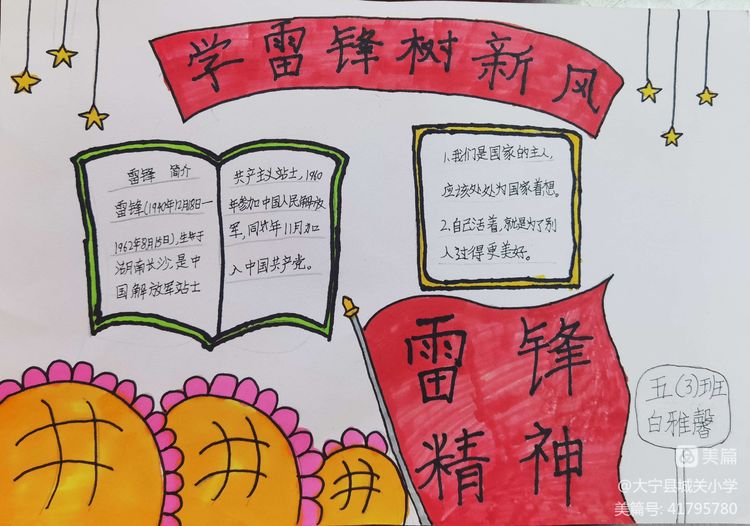 学雷锋树新风
雷锋 简介
雷锋(1940年12月18日—
1962年8月15日),生于
湖南长沙,是中
国解放军站士
共产主义站士,1960
年参加中国人民解放
军,同年11月加
入中国共产党。
1.我们是国家的主人,
应该处处为国家着想。
2.自己活着,就是为了别
人过得更美好。
雷锋
精神
五(3)班
白雅馨
美篇
@大宁县城关小学
美篇号: 41795780